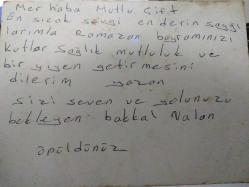 Merhaba Mutlu Çift
En sıcak sevgi en derin saygı
larımla Ramazan bayramınızı
kutlar sağlık mutluluk ve
bir yiyen getirmesini
dilerim yazan
sizi seven ve yolunuzu
bekleyen bakkal Nalan
öpüldünüz